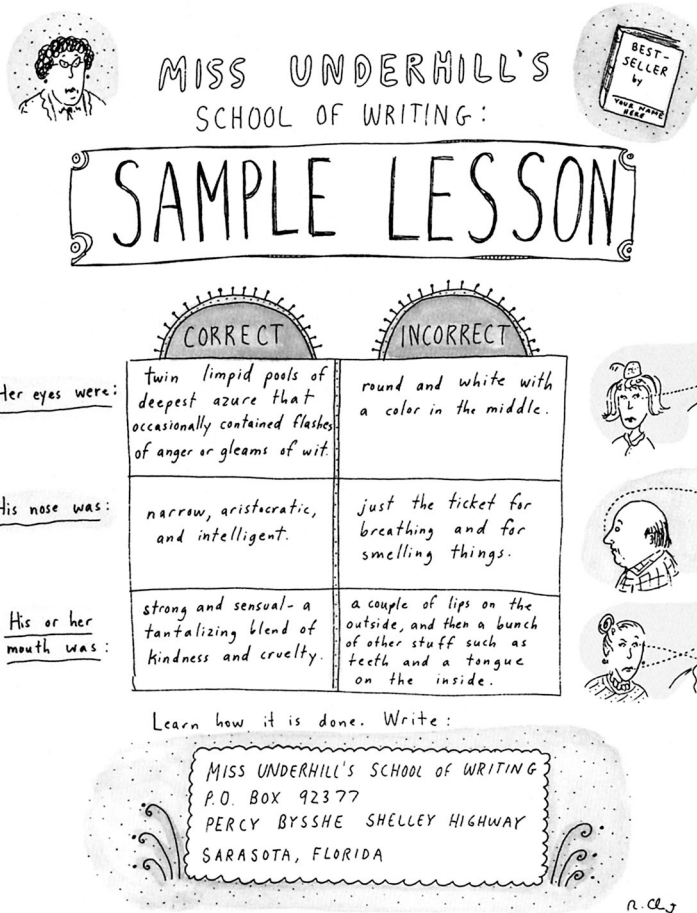 MISS UNDERHILL'S
SCHOOL OF WRITING:
BEST-
SELLER
by
YOUR NAME
HERE
SAMPLE LESSON
CORRECT
INCORRECT
Her eyes were:
twin limpid pools of
deepest azure that
occasionally contained flashes
of anger or gleams of wit.
round and white with
a color in the middle.
His nose was:
narrow, aristocratic,
and intelligent.
just the ticket for
breathing and for
smelling things.
His or her
mouth was:
strong and sensual - a
tantalizing blend of
kindness and cruelty.
a couple of lips on the
outside, and then a bunch
of other stuff such as
teeth and a tongue
on the inside.
Learn how it is done. Write:
MISS UNDERHILL'S SCHOOL OF WRITING
P.O. BOX 92377
PERCY BYSSHE SHELLEY HIGHWAY
SARASOTA, FLORIDA